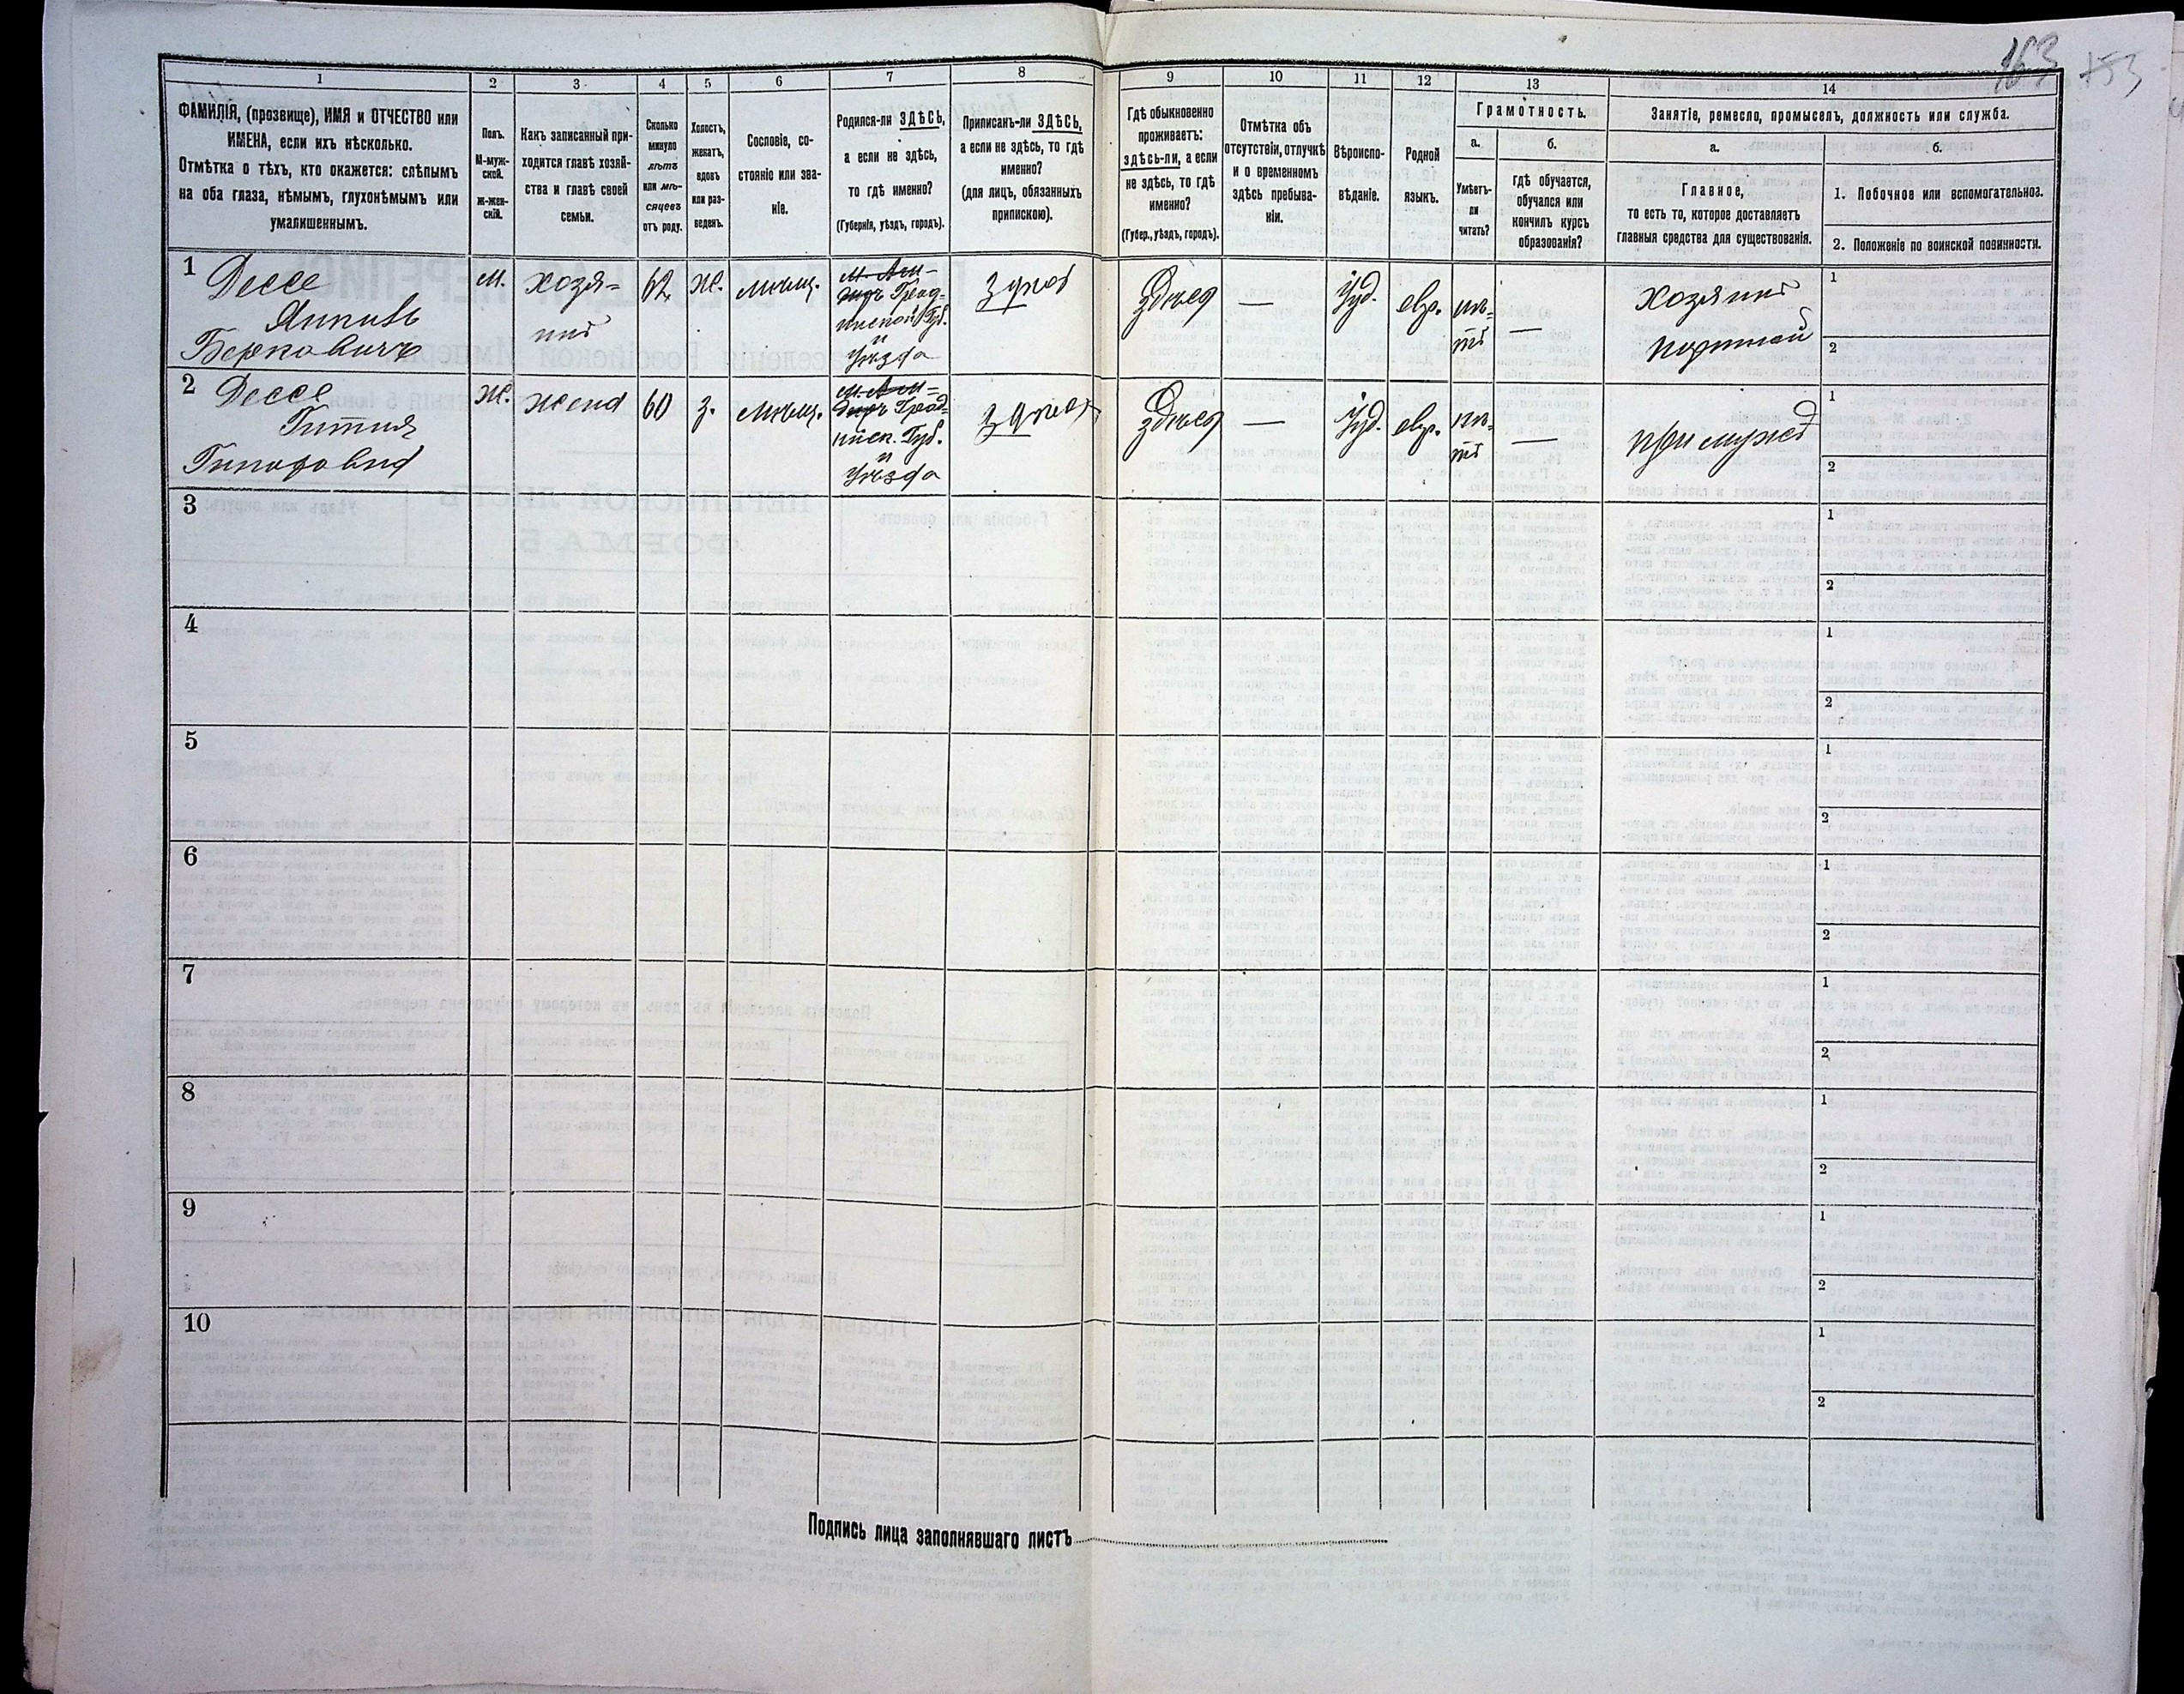 163 153
1 2 3 4 5 6 7 8 9 10 11 12 13 14
ФАМИЛІЯ, (прозвище), ИМЯ и ОТЧЕСТВО или
ИМЕНА, если ихъ нѣсколько.
Отмѣтка о тѣхъ, кто окажется: слѣпымъ
на оба глаза, нѣмымъ, глухонѣмымъ или
умалишеннымъ.
Полъ.
М-муж-
ской.
ж-жен-
скій.
Какъ записанный при-
ходится главѣ хозяй-
ства и главѣ своей
семьи.
Сколько
минуло
лѣтъ
или мѣ-
сяцевъ
отъ роду.
Холостъ,
женатъ,
вдовъ
или раз-
веденъ.
Сословіе, со-
стояніе или зва-
ніе.
Родился-ли ЗДѢСЬ,
а если не здѣсь,
то гдѣ именно?
(Губернія, уѣздъ, городъ).
Приписанъ-ли ЗДѢСЬ,
а если не здѣсь, то гдѣ
именно?
(для лицъ, обязанныхъ
припискою).
Гдѣ обыкновенно
проживаетъ:
здѣсь-ли, а если
не здѣсь, то гдѣ
именно?
(Губер., уѣздъ, городъ).
Отмѣтка объ
отсутствіи, отлучкѣ
и о временномъ
здѣсь пребыва-
ніи.
Вѣроиспо-
вѣданіе.
Родной
языкъ.
Грамотность.
а.
Умѣетъ-
ли
читать?
б.
гдѣ обучается,
обучался или
кончилъ курсъ
образованія?
Занятіе, ремесло, промыселъ, должность или служба.
а.
Главное,
то есть то, которое доставляетъ
главныя средства для существованія.
б.
1. Побочное или вспомогательное.
2. Положеніе по воинской повинности.
1 Дессе
Янкивъ
Берковичъ
м.
хозя-
инъ
62
ж.
мѣщ.
Уѣзда
здѣсь
здѣсь
—
Іуд.
евр.
нѣ-
тъ
—
хозяинъ
портной
1
2
2 Дессе
ж.
жена
60
з.
мѣщ.
Губ.
и
Уѣзда
здѣсь
здѣсь
—
Іуд.
евр.
нѣ-
тъ
—
при мужѣ
1
2
3
1
2
4
1
2
5
1
2
6
1
2
7
1
2
8
1
2
9
1
2
10
1
2
Подпись лица заполнявшаго листъ